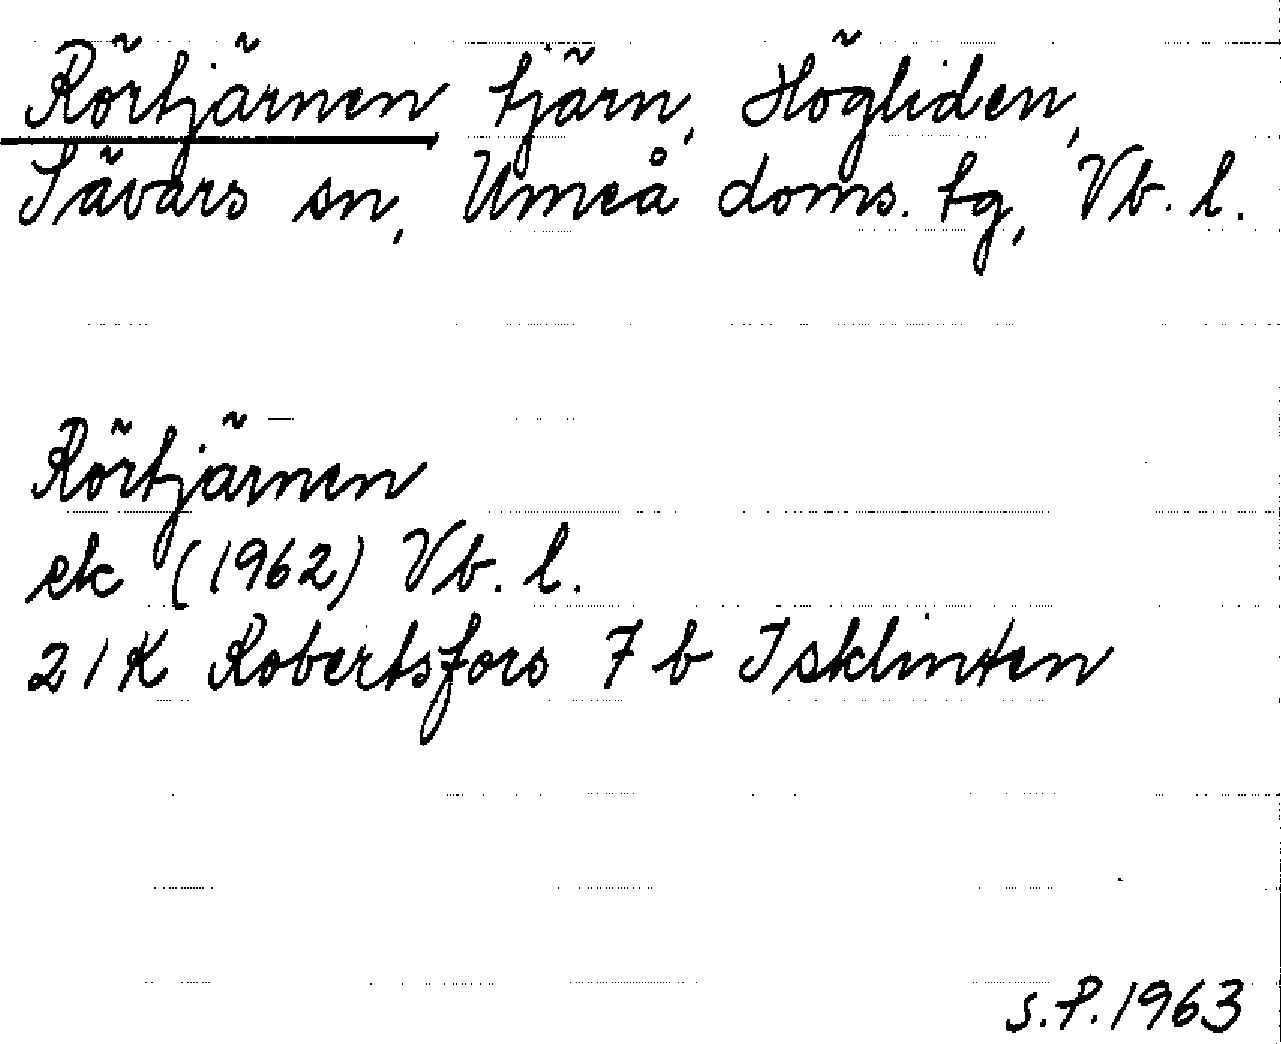 Rörtjärnen tjärn, Högliden,
Sävars sn, Umeå doms. tg, Vb. l.
Rörtjärnen
ek (1962) Vb. l.
21K Robertsfors 7 b Isklinten
S.P. 1963